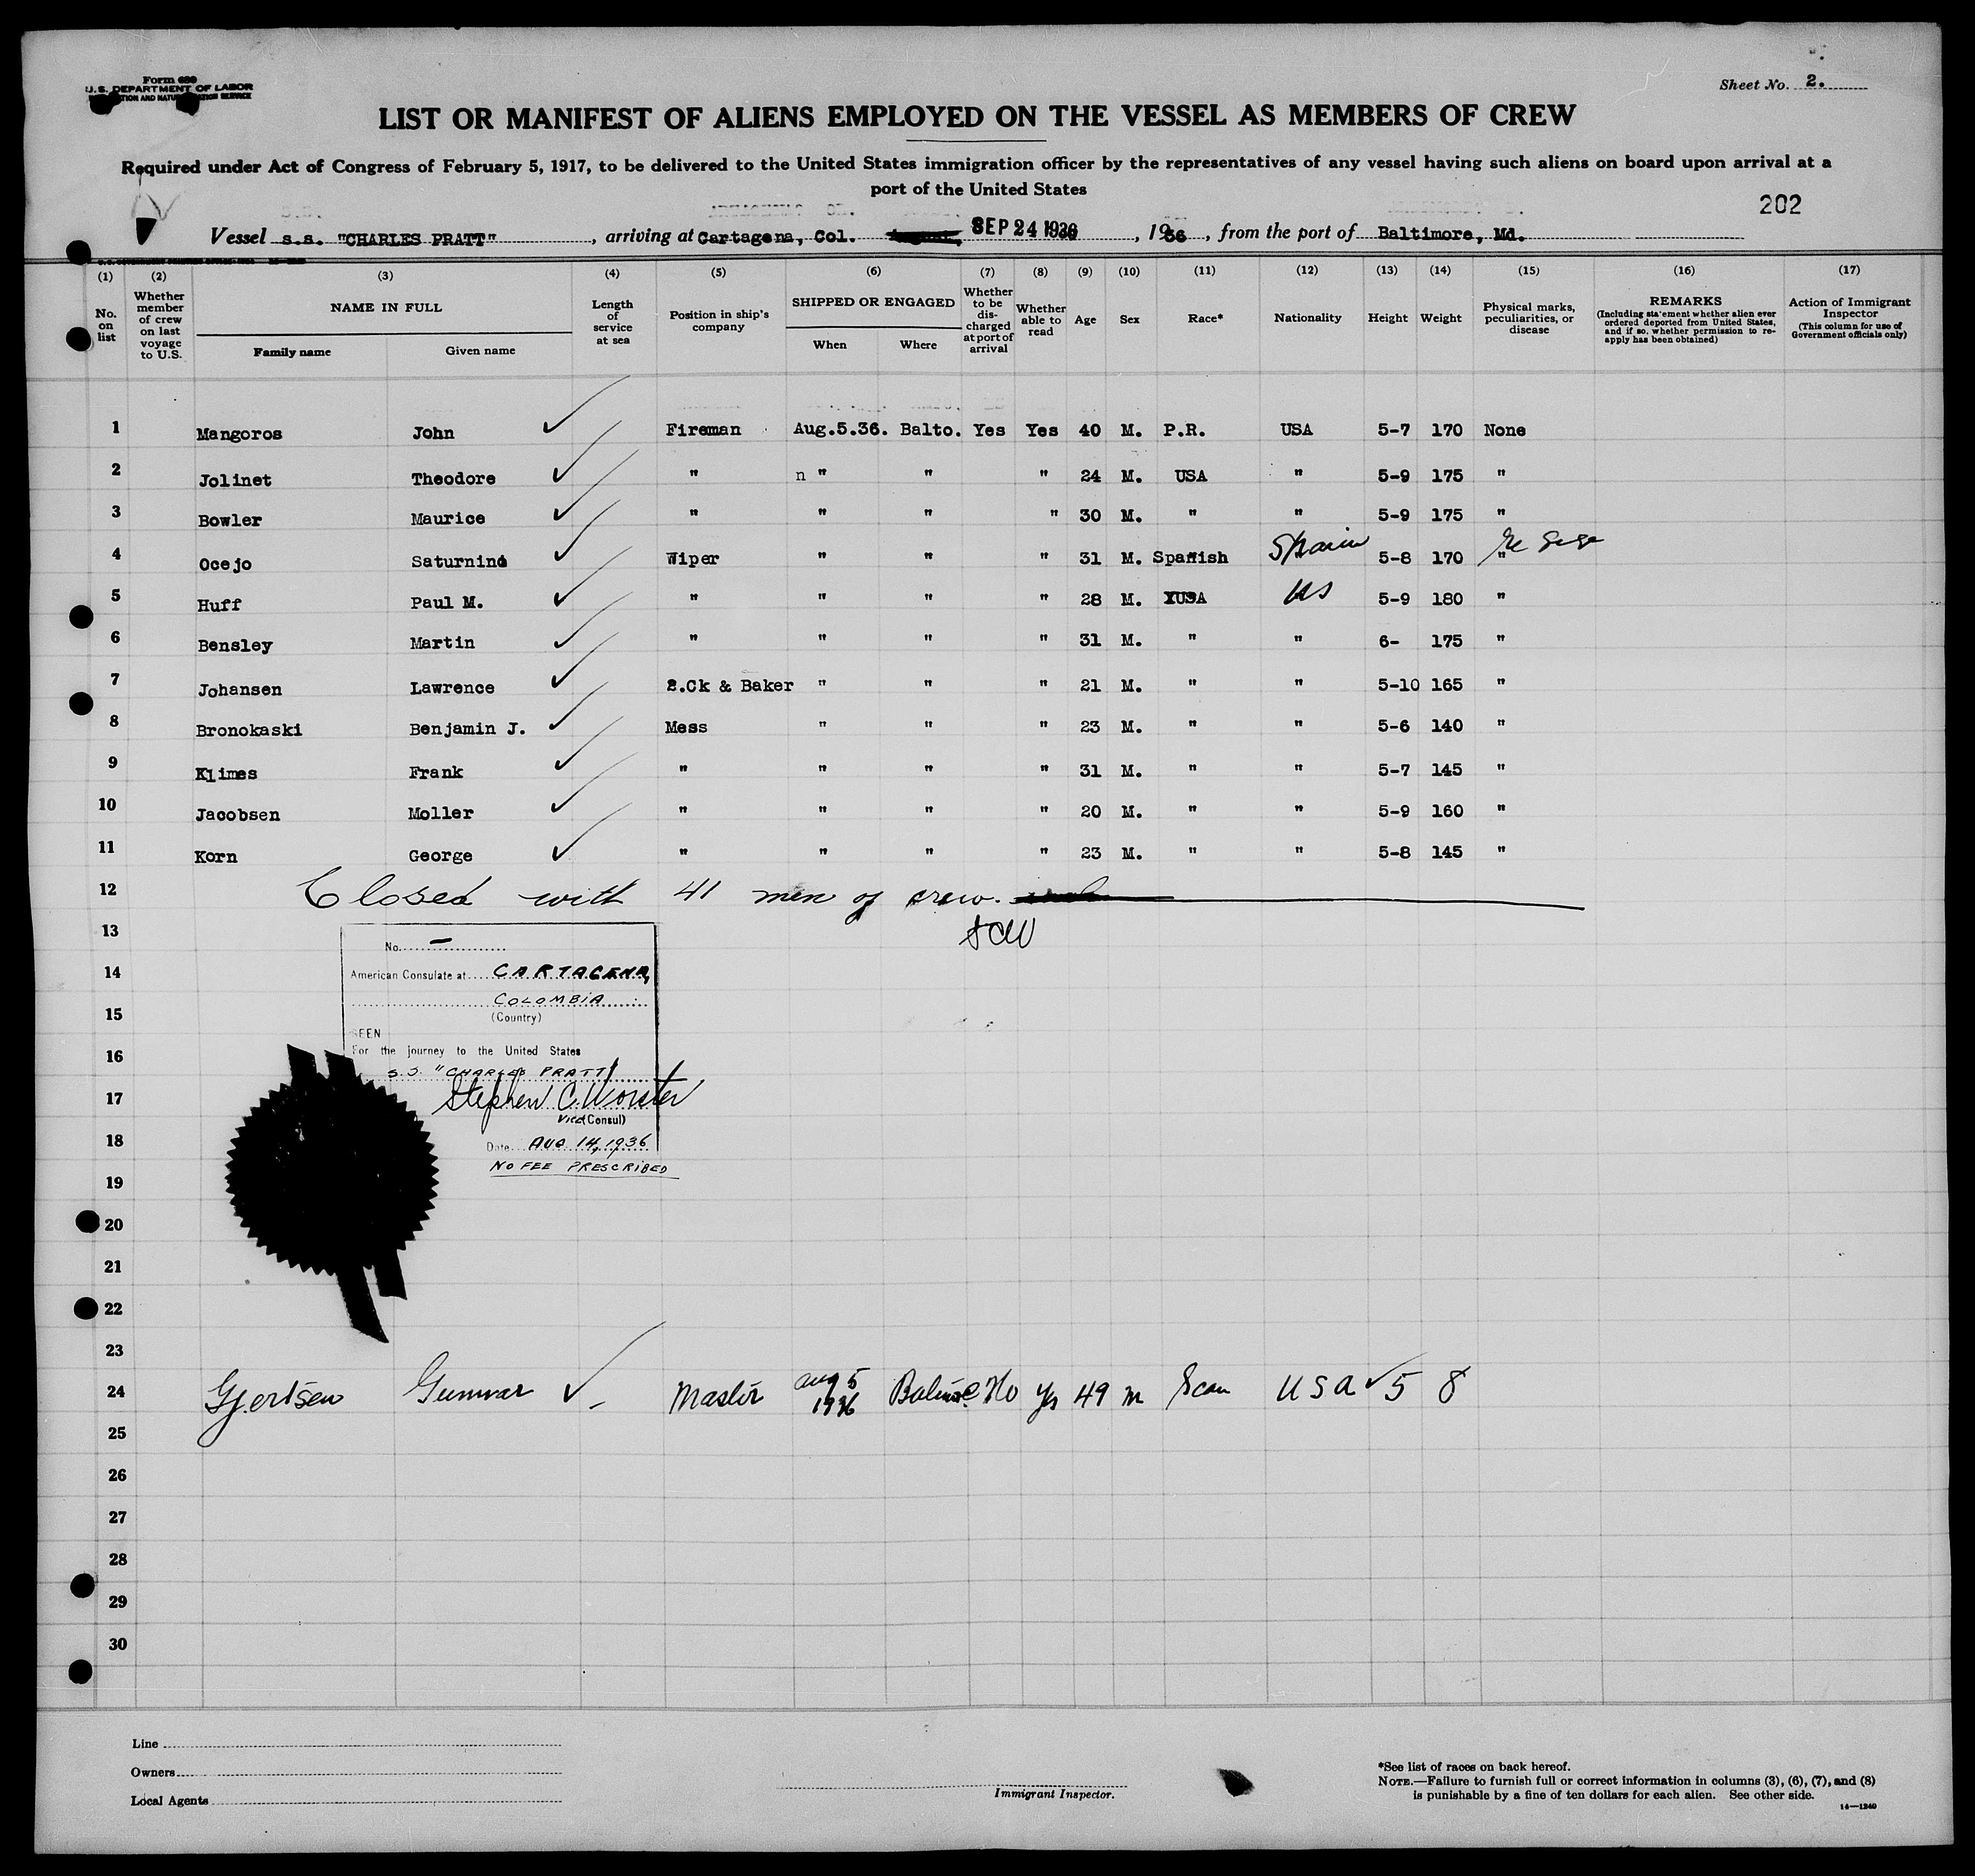 Form 689
U.S. DEPARTMENT OF LABOR
Sheet No. 2.
LIST OR MANIFEST OF ALIENS EMPLOYED ON THE VESSEL AS MEMBERS OF CREW
Required under Act of Congress of February 5, 1917, to be delivered to the United States immigration officer by the representatives of any vessel having such aliens on board upon arrival at a
port of the United States
202
Vessel s.s. "CHARLES PRATT", arriving at Cartagena, Col. SEP 24 1936, 1936, from the port of Baltimore, Md.
(1) (2) (3) (4) (5) (6) (7) (8) (9) (10) (11) (12) (13) (14) (15) (16) (17)
No. on list
Whether member of crew on last voyage to U.S.
NAME IN FULL
Family name Given name
Length of service at sea
Position in ship's company
SHIPPED OR ENGAGED
When Where
Whether to be discharged at port of arrival
Whether able to read
Age
Sex
Race*
Nationality
Height
Weight
Physical marks, peculiarities, or disease
REMARKS
(Including statement whether alien ever ordered deported from United States, and if so, whether permission to reapply has been obtained)
Action of Immigrant Inspector
(This column for use of Government officials only)
1 Mangoros John Fireman Aug.5.36. Balto. Yes Yes 40 M. P.R. USA 5-7 170 None
2 Jolinet Theodore " n " " " 24 M. USA " 5-9 175 "
3 Bowler Maurice " " " " 30 M. " " 5-9 175 "
4 Ocejo Saturnino Wiper " " " 31 M. Spanish Spain 5-8 170 "
5 Huff Paul M. " " " " 28 M. XUSA US 5-9 180 "
6 Bensley Martin " " " " 31 M. " " 6- 175 "
7 Johansen Lawrence 2.Ck & Baker " " " 21 M. " " 5-10 165 "
8 Bronokaski Benjamin J. Mess " " " 23 M. " " 5-6 140 "
9 Klimes Frank " " " " 31 M. " " 5-7 145 "
10 Jacobsen Moller " " " " 20 M. " " 5-9 160 "
11 Korn George " " " " 23 M. " " 5-8 145 "
12 Closed with 41 men of crew.
13
No. –
14
American Consulate at CARTAGENA,
COLOMBIA
15
(Country)
SEEN
16
For the journey to the United States
S.S. "CHARLES PRATT"
17
Stephen C. Worster
Vice (Consul)
18
Date AUG. 14, 1936
NO FEE PRESCRIBED
19
20
21
22
23
24 Gjertsen Gunnar Master Aug 5 1936 No Yes 49 m Scan USA 5 8
25
26
27
28
29
30
Line
Owners
Local Agents
Immigrant Inspector.
*See list of races on back hereof.
NOTE.—Failure to furnish full or correct information in columns (3), (6), (7), and (8)
is punishable by a fine of ten dollars for each alien. See other side.
14—1240